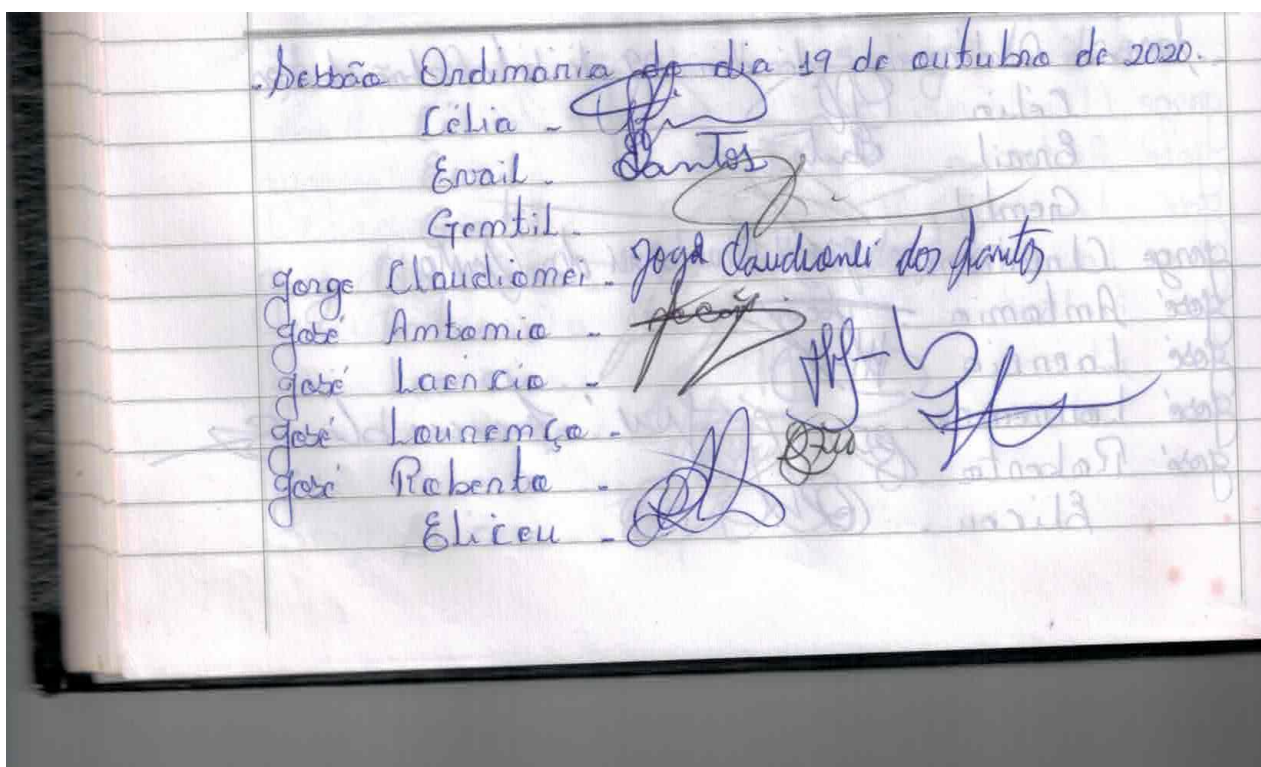 Sessão Ordinária do dia 19 de outubro de 2020.
Célia -
Erail - Santos
Gentil -
Jorge Claudionei - Jorge Claudionei dos Santos
José Antonio -
José Laercio -
José Lourenço -
José Roberto -
Eliceu -